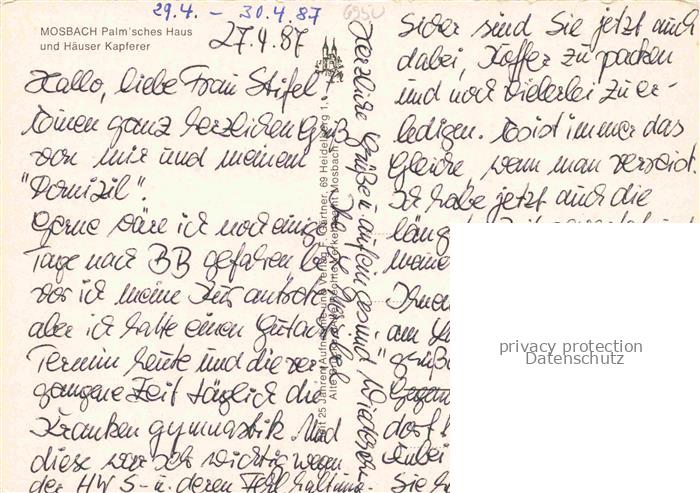 29.4. – 30.4.87
6950
MOSBACH Palm'sches Haus
und Häuser Kapferer
27.4.87
Hallo, liebe Frau Stifel!
Einen ganz herzlichen Gruß
von mir und meinem
"Domizil".
Gerne wäre ich noch einige
Tage nach BB gefahren be-
vor ich meine Kur antrete
aber ich hatte einen Gutach.
Termin heute und die ver-
gangene Zeit täglich die
Krankengymnastik. Und
diese war sehr wichtig wegen
der HWS- u. deren Fehlhaltung.
Seit 25 Jahren Aufnahme und Verlag Gärtner, 69 Heidelberg 1
Mosbach
Herzliche Grüße u. auf ein gesund Wiedersehen
Sicher sind Sie jetzt auch
dabei, Koffer zu packen
und noch vielerlei zu er-
ledigen. Es ist immer das
Gleiche, wenn man verreist.
Ich habe jetzt auch die
läng
meine
Ihnen
am
"grüß
dorf
Anbei
Sie
privacy protection
Datenschutz